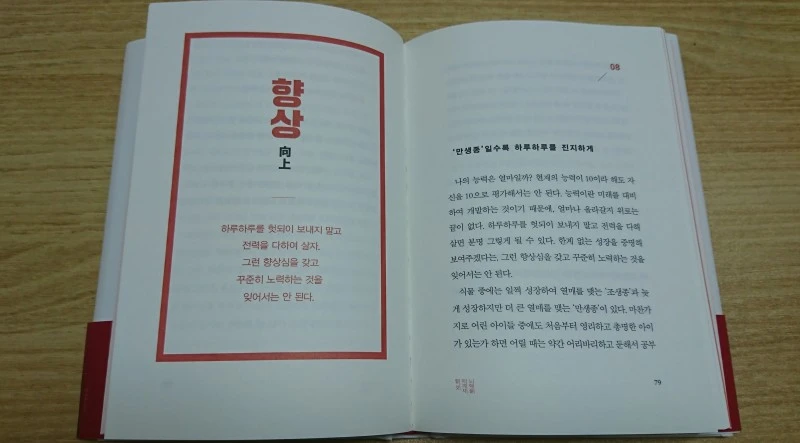 향상
向上
하루하루를 헛되이 보내지 말고
전력을 다하여 살자.
그런 향상심을 갖고
꾸준히 노력하는 것을
잊어서는 안 된다.
08
'만생종'일수록 하루하루를 진지하게
나의 능력은 얼마일까? 현재의 능력이 10이라 해도 자
신을 10으로 평가해서는 안 된다. 능력이란 미래를 대비
하여 개발하는 것이기 때문에, 얼마나 올라갈지 위로는
끝이 없다. 하루하루를 헛되이 보내지 말고 전력을 다해
살면 분명 그렇게 될 수 있다. 한계 없는 성장을 증명해
보여주겠다는, 그런 향상심을 갖고 꾸준히 노력하는 것을
잊어서는 안 된다.
식물 중에는 일찍 성장하여 열매를 맺는 '조생종'과 늦
게 성장하지만 더 큰 열매를 맺는 '만생종'이 있다. 마찬가
지로 어린 아이들 중에도 처음부터 영리하고 총명한 아이
가 있는가 하면 어릴 때는 약간 어리바리하고 둔해서 공부
79